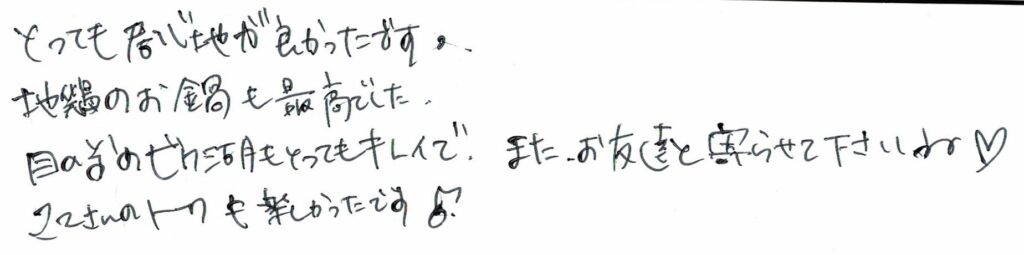 とっても居心地が良かったです。
地鶏のお鍋も最高でした.
目の前の もとってもキレイで、また、お友達と寄らせて下さいね♡
さんのトークも楽しかったです♪